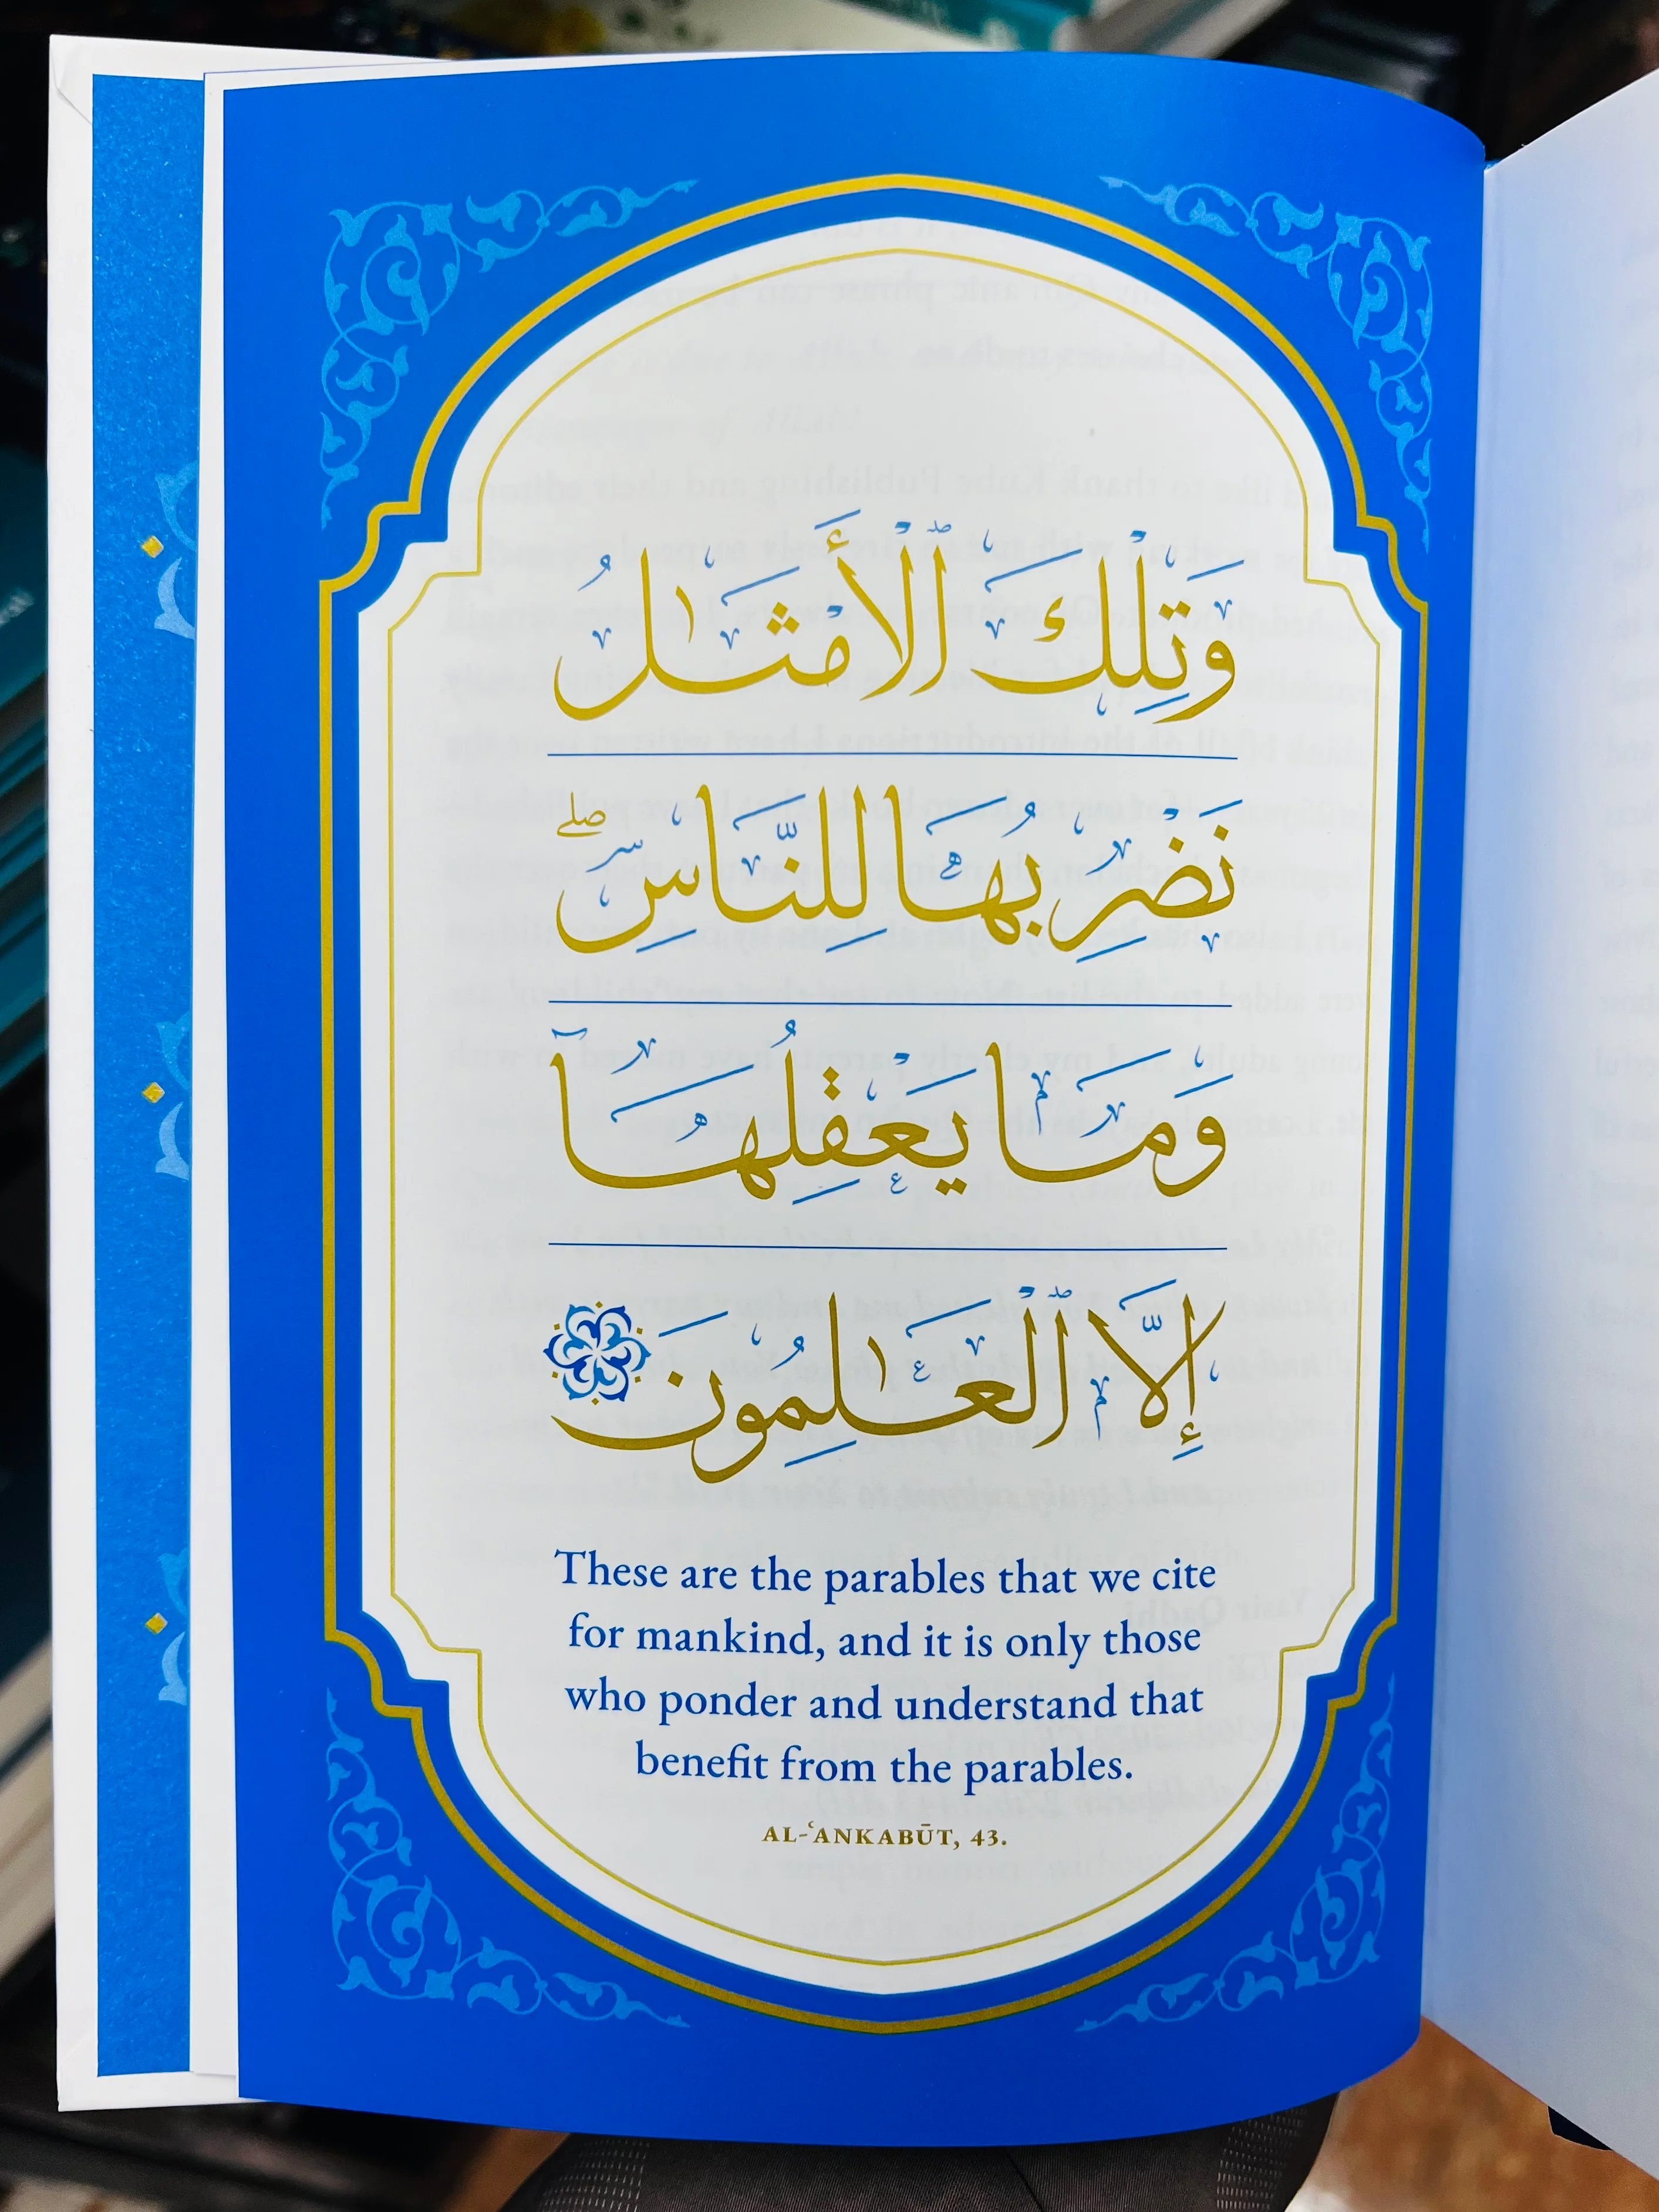 وَتِلْكَ ٱلْأَمْثَٰلُ
نَضْرِبُهَا لِلنَّاسِ ۖ
وَمَا يَعْقِلُهَآ
إِلَّا ٱلْعَٰلِمُونَ
These are the parables that we cite
for mankind, and it is only those
who ponder and understand that
benefit from the parables.
AL-ʿANKABŪT, 43.